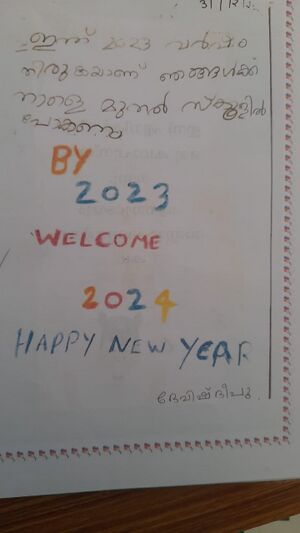 31/12/23
ഇന്ന് 2023 വർഷം
തീരുകയാണ് ഞങ്ങൾക്ക്
നാളെ മുതൽ സ്കൂളിൽ
പോകണം
BY
2023
WELCOME
2024
HAPPY NEW YEAR
ദേവിഷ്ദീപു.